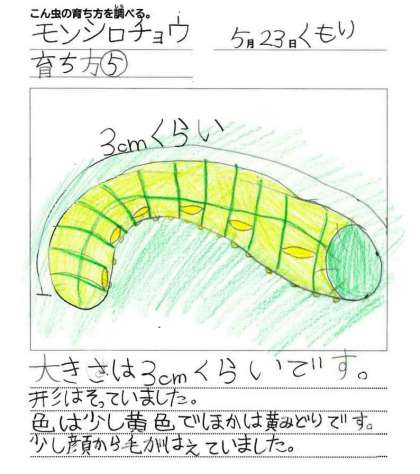 こん虫の育ち方を調べる。
モンシロチョウ
5月23日くもり
育ち方⑤
3cmくらい
大きさは3cmくらいです。
形はそっていました。
色は少し黄色でほかは黄みどりです。
少し顔から毛がはえていました。